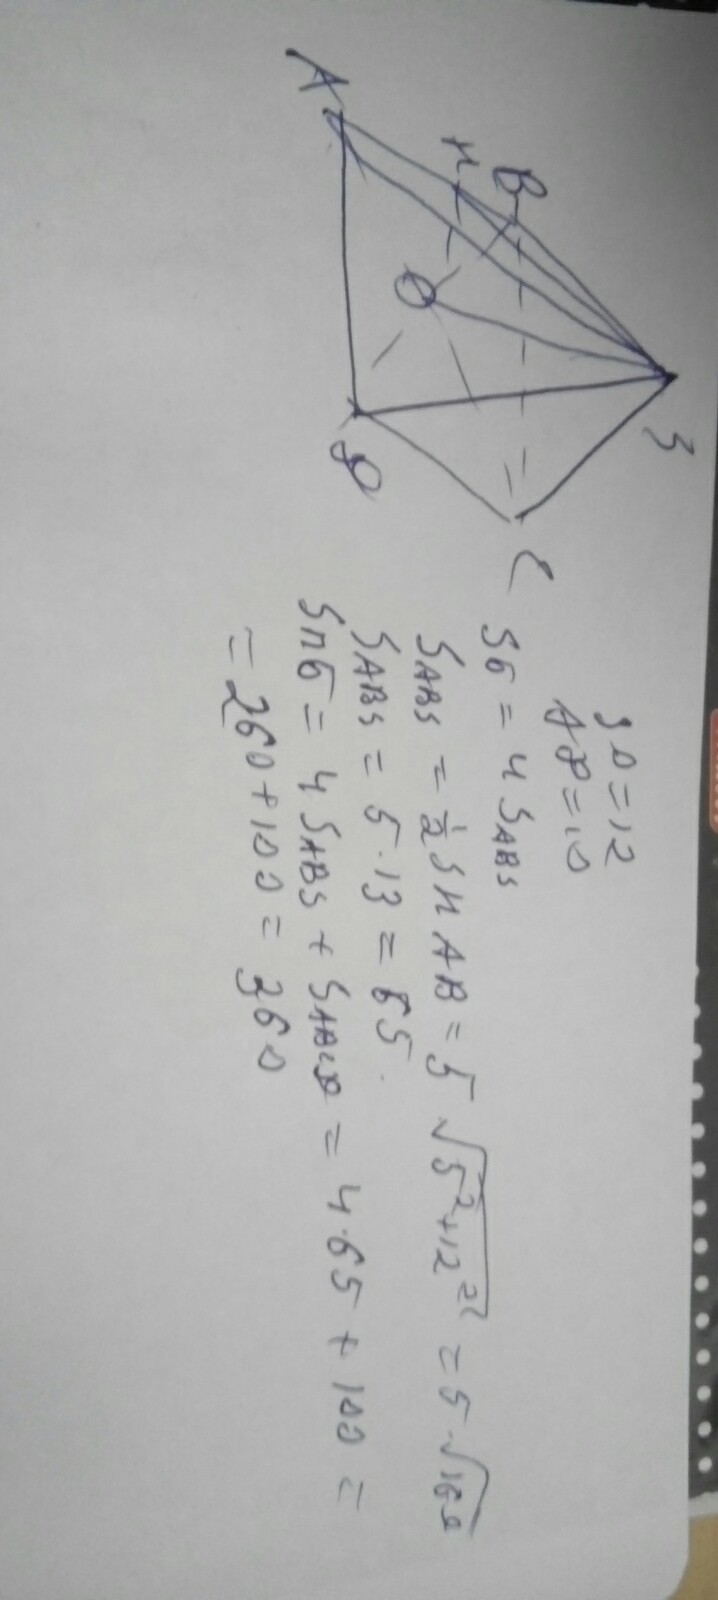 S
A
H
B
O
D
C
SO = 12
AD = 10
Sб = 4 S_ABS
S_ABS = 1/2 SH AB = 5 √(5²+12²) = 5·√169
S_ABS = 5·13 = 65.
Sпб = 4 S_ABS + S_ABCD = 4·65 + 100 =
= 260 + 100 = 360